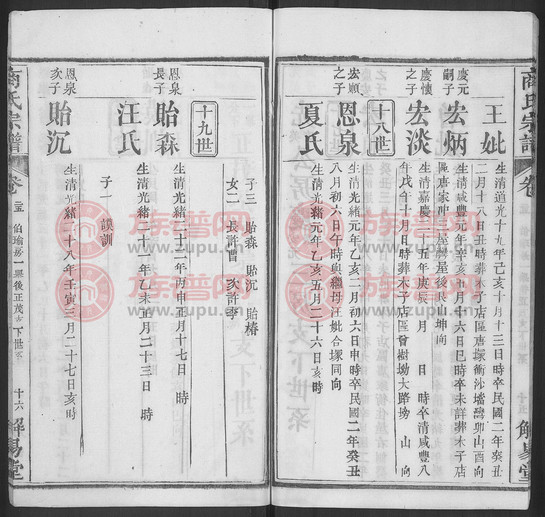 商氏宗譜
卷
解易堂
王妣
生清道光十九年乙亥十月十三日亥時卒民國二年癸丑
二月十八日丑時葬木子店區唐塚衝沙壋灣卯山酉向
慶元嗣子
宏炳
生清咸豐元年辛亥五月十六日巳時卒未詳葬木子店
區唐家衝屋後艮山坤向
慶懷之子
宏淡
生清嘉慶二十五年庚辰 月 日 時卒清咸豐八
年戊午十月 日 時葬木子店區曾樹坳大路塝 山 向
十八世
宏順之子
恩泉
生清光緒元年乙亥二月初六日申時卒民國二年癸丑
八月初六日午時與繼母汪妣合塚同向
夏氏
生清光緒元年乙亥五月二十六日亥時
子三 貽森 貽沉 貽椿
女二 長許曾 次許李
十九世
恩泉長子
貽森
生清光緒二十二年丙申正月十七日 時
汪氏
生清光緒二十一年乙未正月二十三日 時
子一 謨訓
恩泉次子
貽沉
生清光緒二十八年壬寅三月二十七日亥時
商氏宗譜
卷
十六
解易堂
族譜网
www.zupu.cn